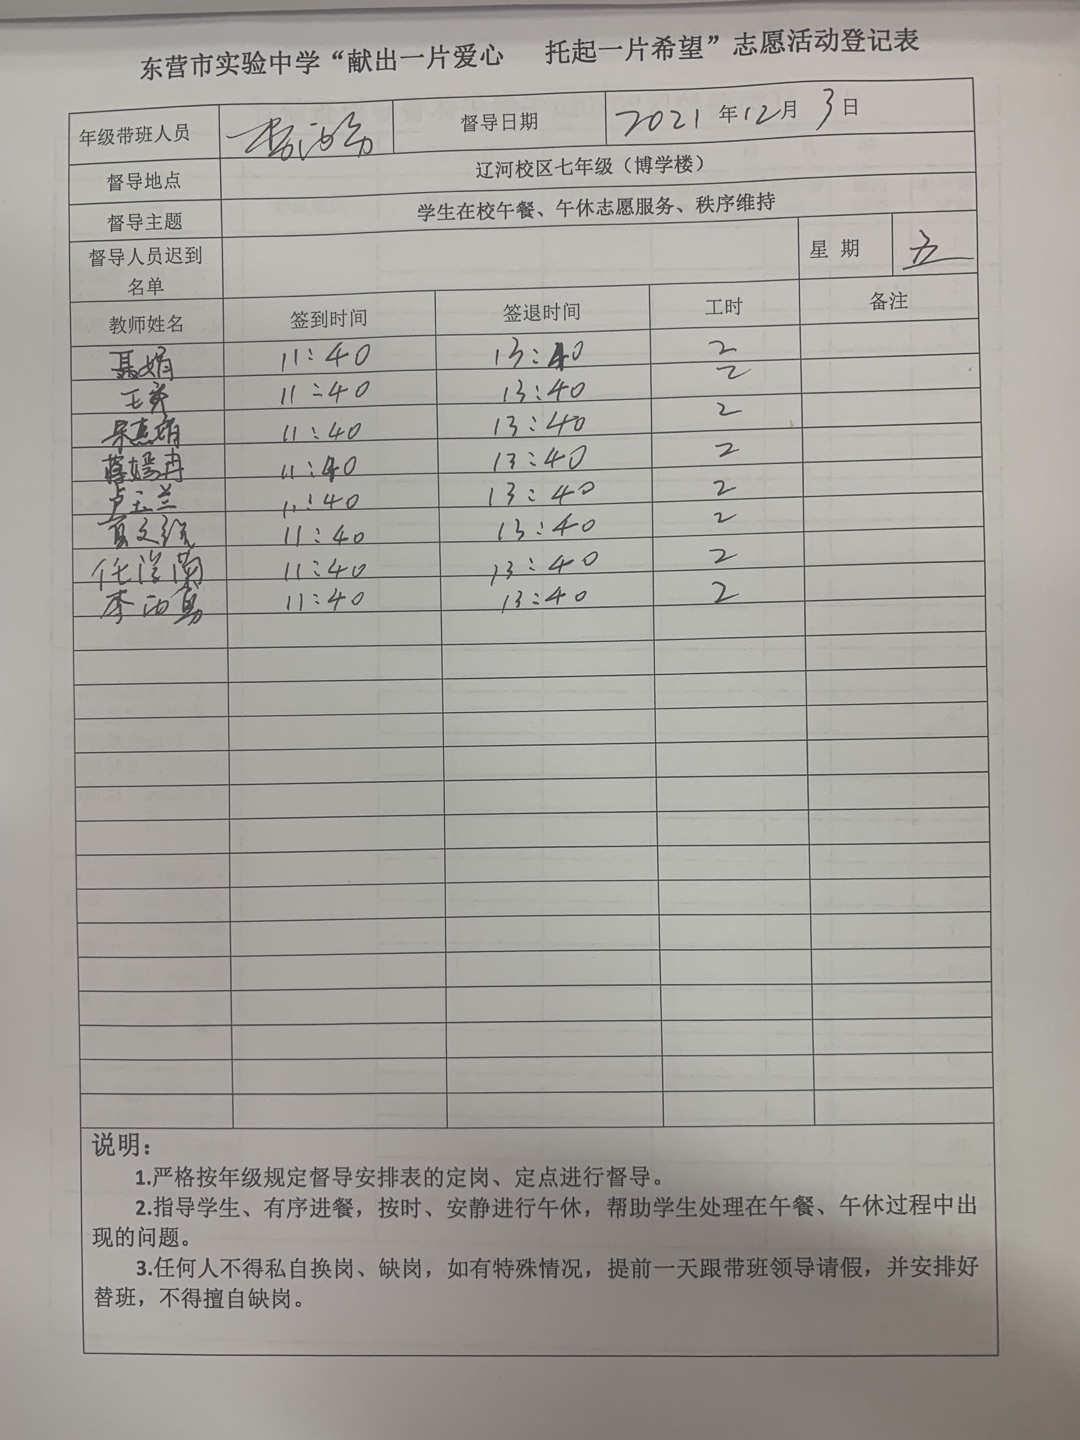 东营市实验中学“献出一片爱心 托起一片希望”志愿活动登记表
年级带班人员 督导日期 2021年12月3日
督导地点 辽河校区七年级（博学楼）
督导主题 学生在校午餐、午休志愿服务、秩序维持
督导人员迟到名单 星 期 五
教师姓名 签到时间 签退时间 工时 备注
聂娟 11:40 13:40 2
王 11:40 13:40 2
11:40 13:40 2
11:40 13:40 2
卢玉兰 11:40 13:40 2
夏文 11:40 13:40 2
任 11:40 13:40 2
李 11:40 13:40 2
说明：
1.严格按年级规定督导安排表的定岗、定点进行督导。
2.指导学生、有序进餐，按时、安静进行午休，帮助学生处理在午餐、午休过程中出
现的问题。
3.任何人不得私自换岗、缺岗，如有特殊情况，提前一天跟带班领导请假，并安排好
替班，不得擅自缺岗。